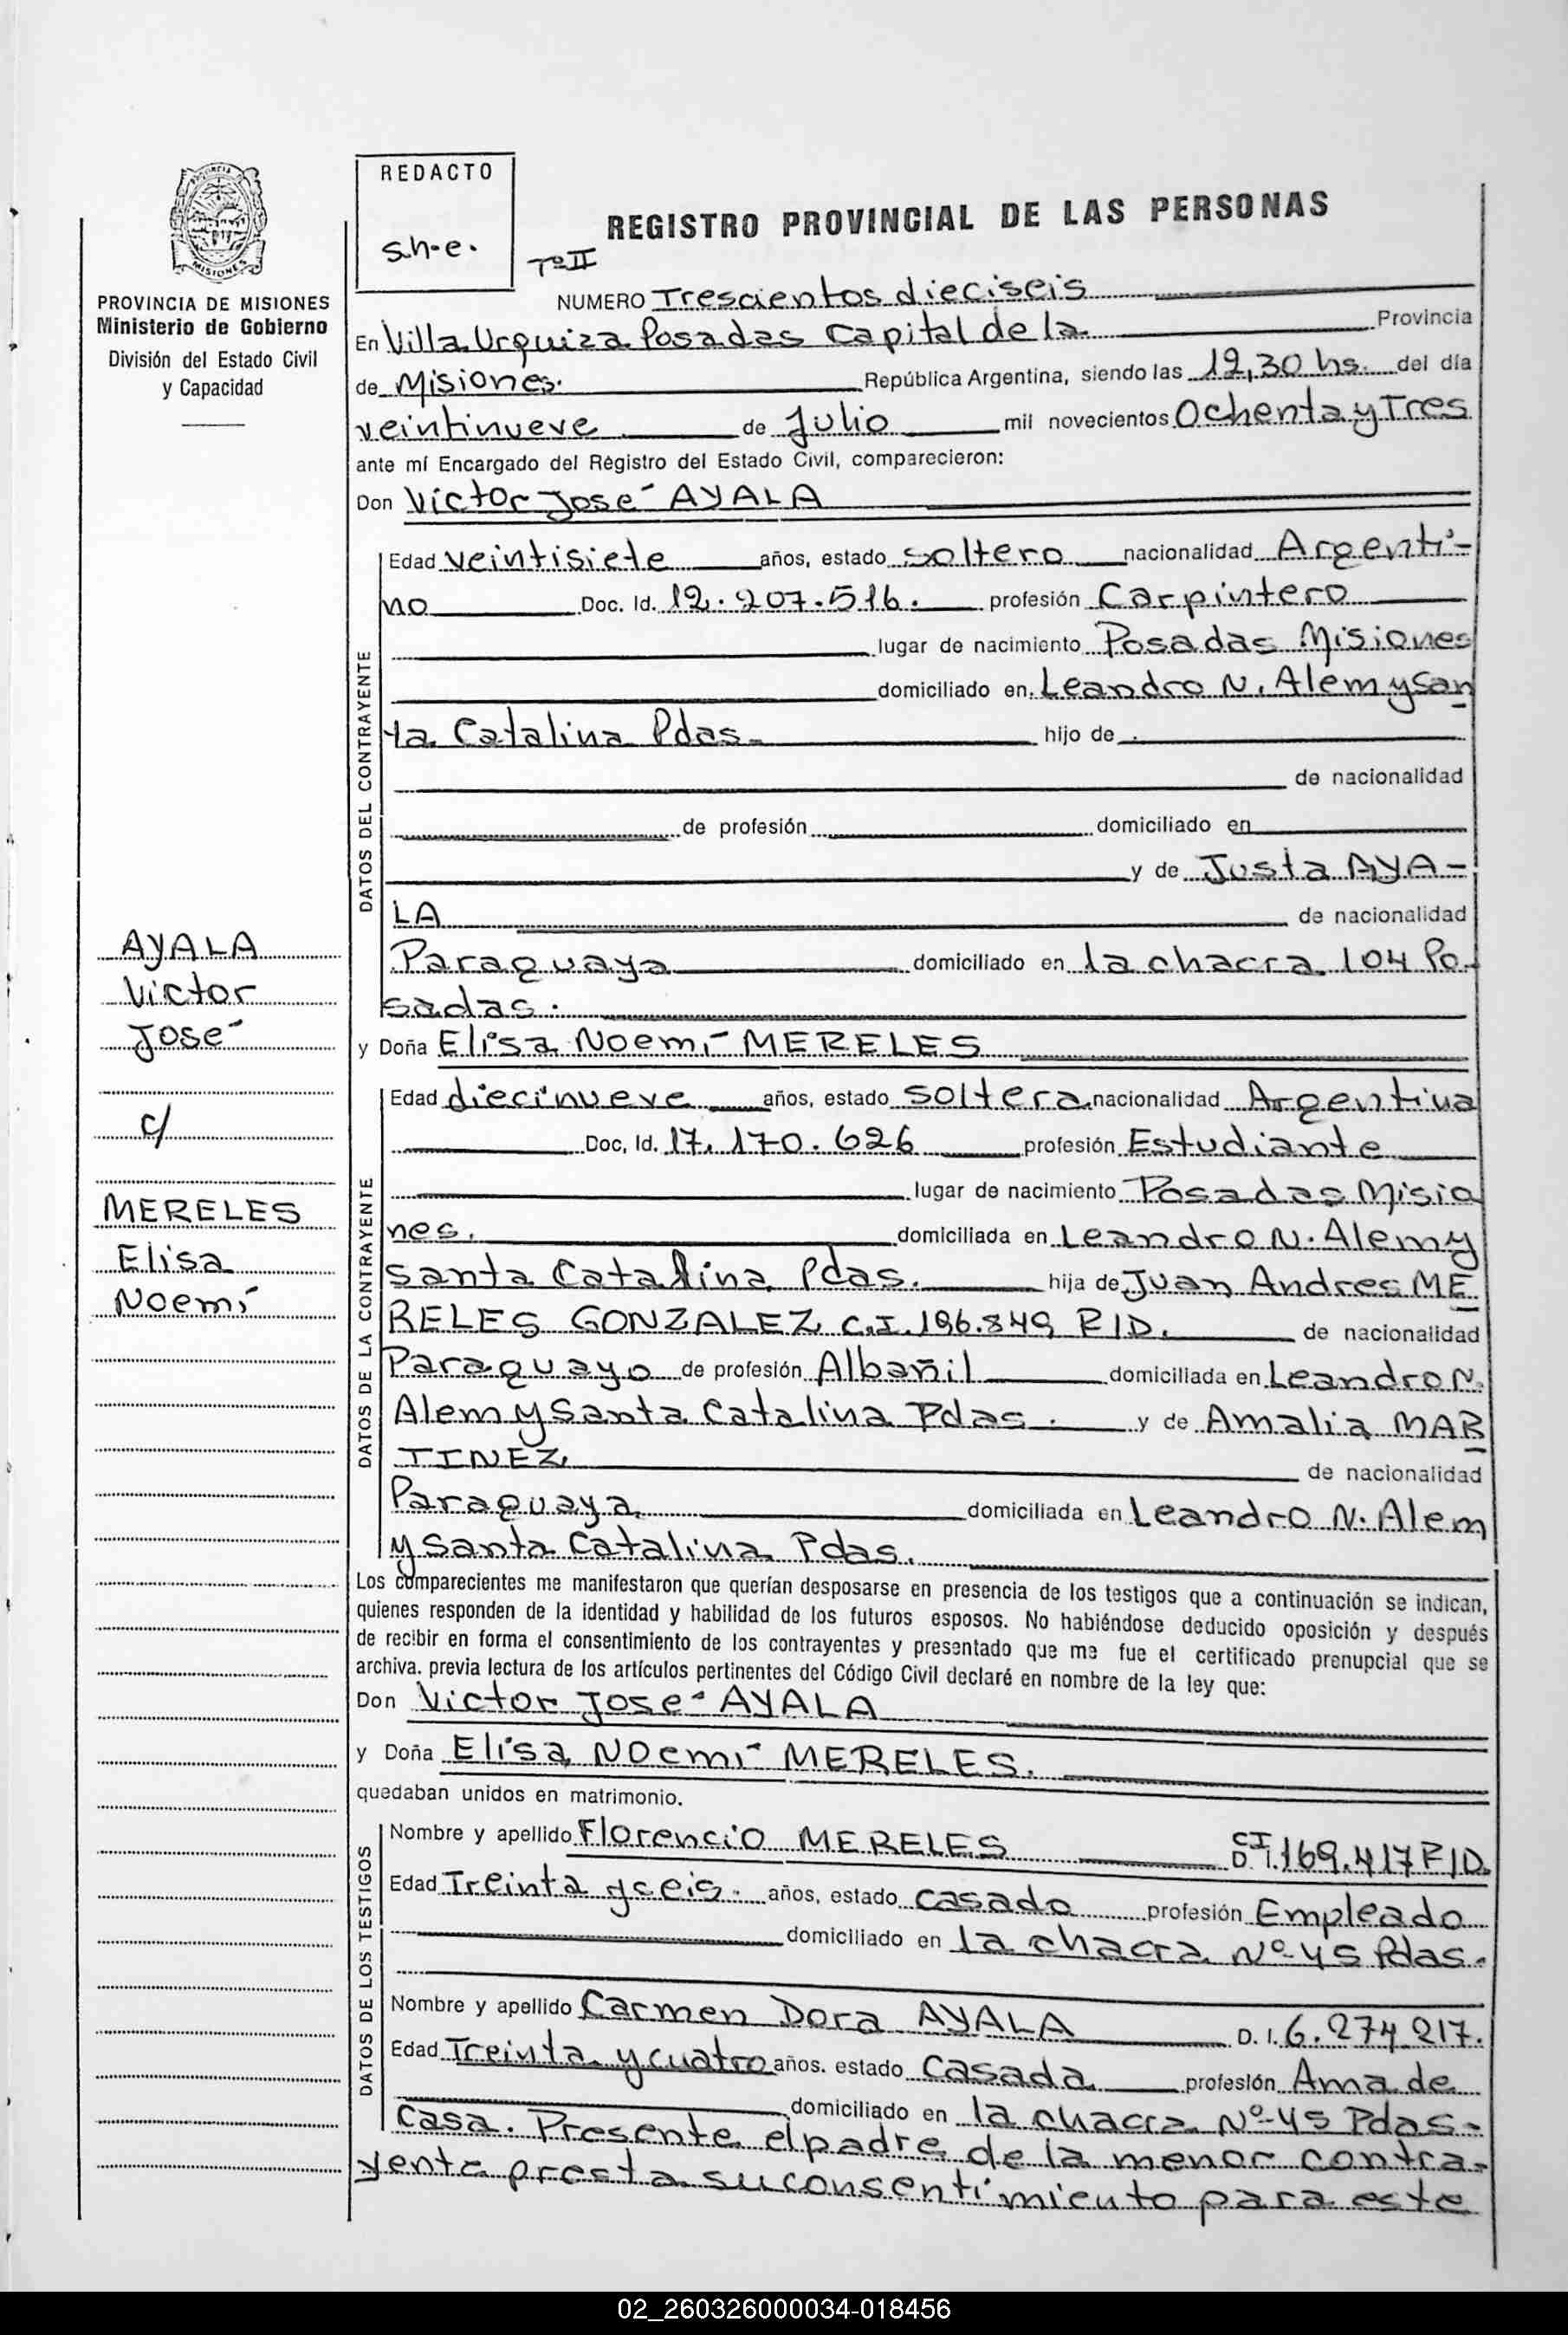 REDACTO
s.h.e.
REGISTRO PROVINCIAL DE LAS PERSONAS
Tº II
PROVINCIA DE MISIONES
Ministerio de Gobierno
División del Estado Civil
y Capacidad
NUMERO Trescientos dieciseis
En Villa Urquiza Posadas Capital de la Provincia
de Misiones. República Argentina, siendo las 12,30 hs. del día
veintinueve de Julio mil novecientos Ochenta y Tres
ante mí Encargado del Registro del Estado Civil, comparecieron:
Don Victor José AYALA
DATOS DEL CONTRAYENTE
Edad veintisiete años, estado soltero nacionalidad Argenti-
no Doc. Id. 12.207.516. profesión Carpintero
lugar de nacimiento Posadas Misiones
domiciliado en Leandro N. Alem y San
ta Catalina Pdas. hijo de
de nacionalidad
de profesión domiciliado en
y de Justa AYA-
LA de nacionalidad
Paraguaya domiciliado en la chacra 104 Po-
sadas.
AYALA
Victor
José
c/
MERELES
Elisa
Noemí
y Doña Elisa Noemí MERELES
DATOS DE LA CONTRAYENTE
Edad diecinueve años, estado soltera nacionalidad Argentina
Doc. Id. 17.170.626 profesión Estudiante
lugar de nacimiento Posadas Misio
nes. domiciliada en Leandro N. Alem y
santa Catalina Pdas. hija de Juan Andres ME
RELES GONZALEZ C.I. 196.849 PID. de nacionalidad
Paraguayo de profesión Albañil domiciliada en Leandro N.
Alem y Santa Catalina Pdas. y de Amalia MAR
TINEZ de nacionalidad
Paraguaya domiciliada en Leandro N. Alem
y Santa Catalina Pdas.
Los comparecientes me manifestaron que querían desposarse en presencia de los testigos que a continuación se indican,
quienes responden de la identidad y habilidad de los futuros esposos. No habiéndose deducido oposición y después
de recibir en forma el consentimiento de los contrayentes y presentado que me fue el certificado prenupcial que se
archiva. previa lectura de los artículos pertinentes del Código Civil declaré en nombre de la ley que:
Don Victor José AYALA
y Doña Elisa Noemí MERELES.
quedaban unidos en matrimonio.
DATOS DE LOS TESTIGOS
Nombre y apellido Florencio MERELES CI D. I. 169.417 PID.
Edad Treinta y ceis. años, estado casado profesión Empleado
domiciliado en la chacra Nº 45 Pdas.
Nombre y apellido Carmen Dora AYALA D. I. 6.274.217.
Edad Treinta y cuatro años. estado casada profesión Ama de
domiciliado en la chacra Nº 45 Pdas.
casa. Presente el padre de la menor contra-
yente presta su consentimiento para este
02_260326000034-018456